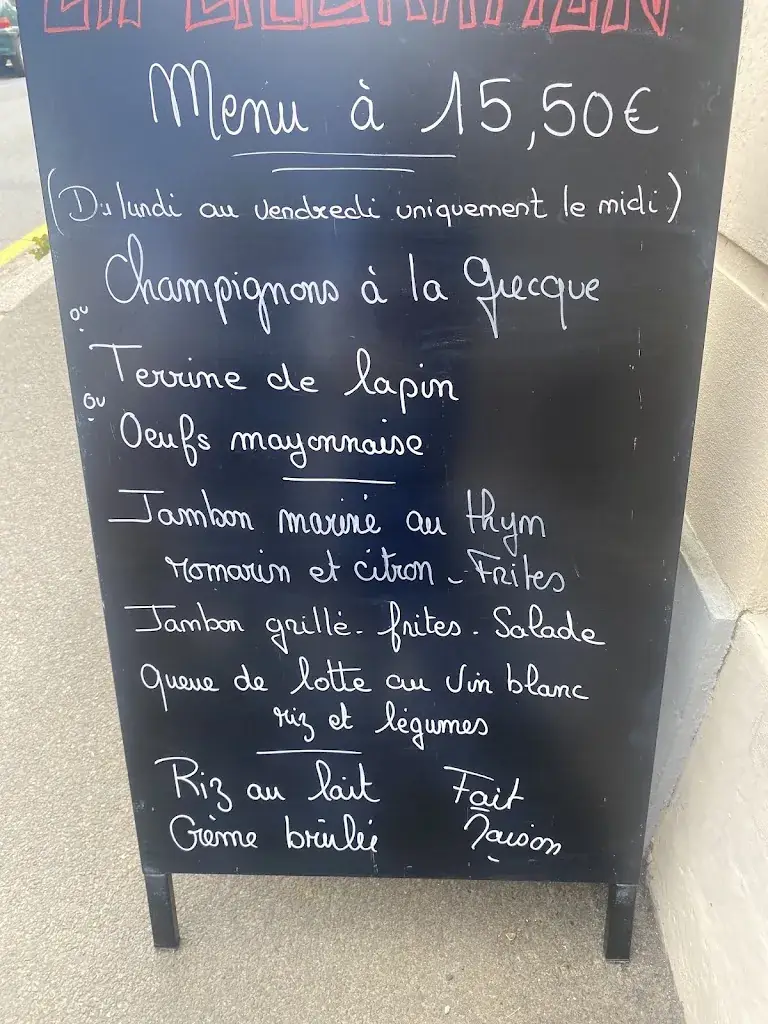 Menu à 15,50€
(Du lundi au vendredi uniquement le midi)
Champignons à la grecque
ou
Terrine de lapin
ou
Oeufs mayonnaise
Jambon mariné au thym
romarin et citron - Frites
Jambon grillé - frites - Salade
queue de lotte au vin blanc
riz et légumes
Riz au lait Fait
Crème brûlée Maison